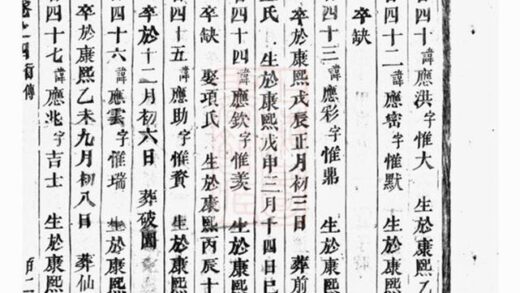 四十 諱應洪字惟大 生於康熙乙
四十二 諱應密字惟默 生於康熙
卒缺
四十三 諱應彩字惟鼎 生於康熙
卒於康熙戊辰正月初三日 葬前
氏 生於康熙戊申三月十四日巳
四十四 諱應欽字惟美 生於康熙
卒缺 娶項氏 生於康熙丙辰十
四十五 諱應助字惟賚 生於康熙
卒於十二月初六日 葬破園
四十六 諱應雲字惟瑞 生於康熙
卒於康熙乙未九月初八日 葬仙
四十七 諱應兆字吉士 生於康熙